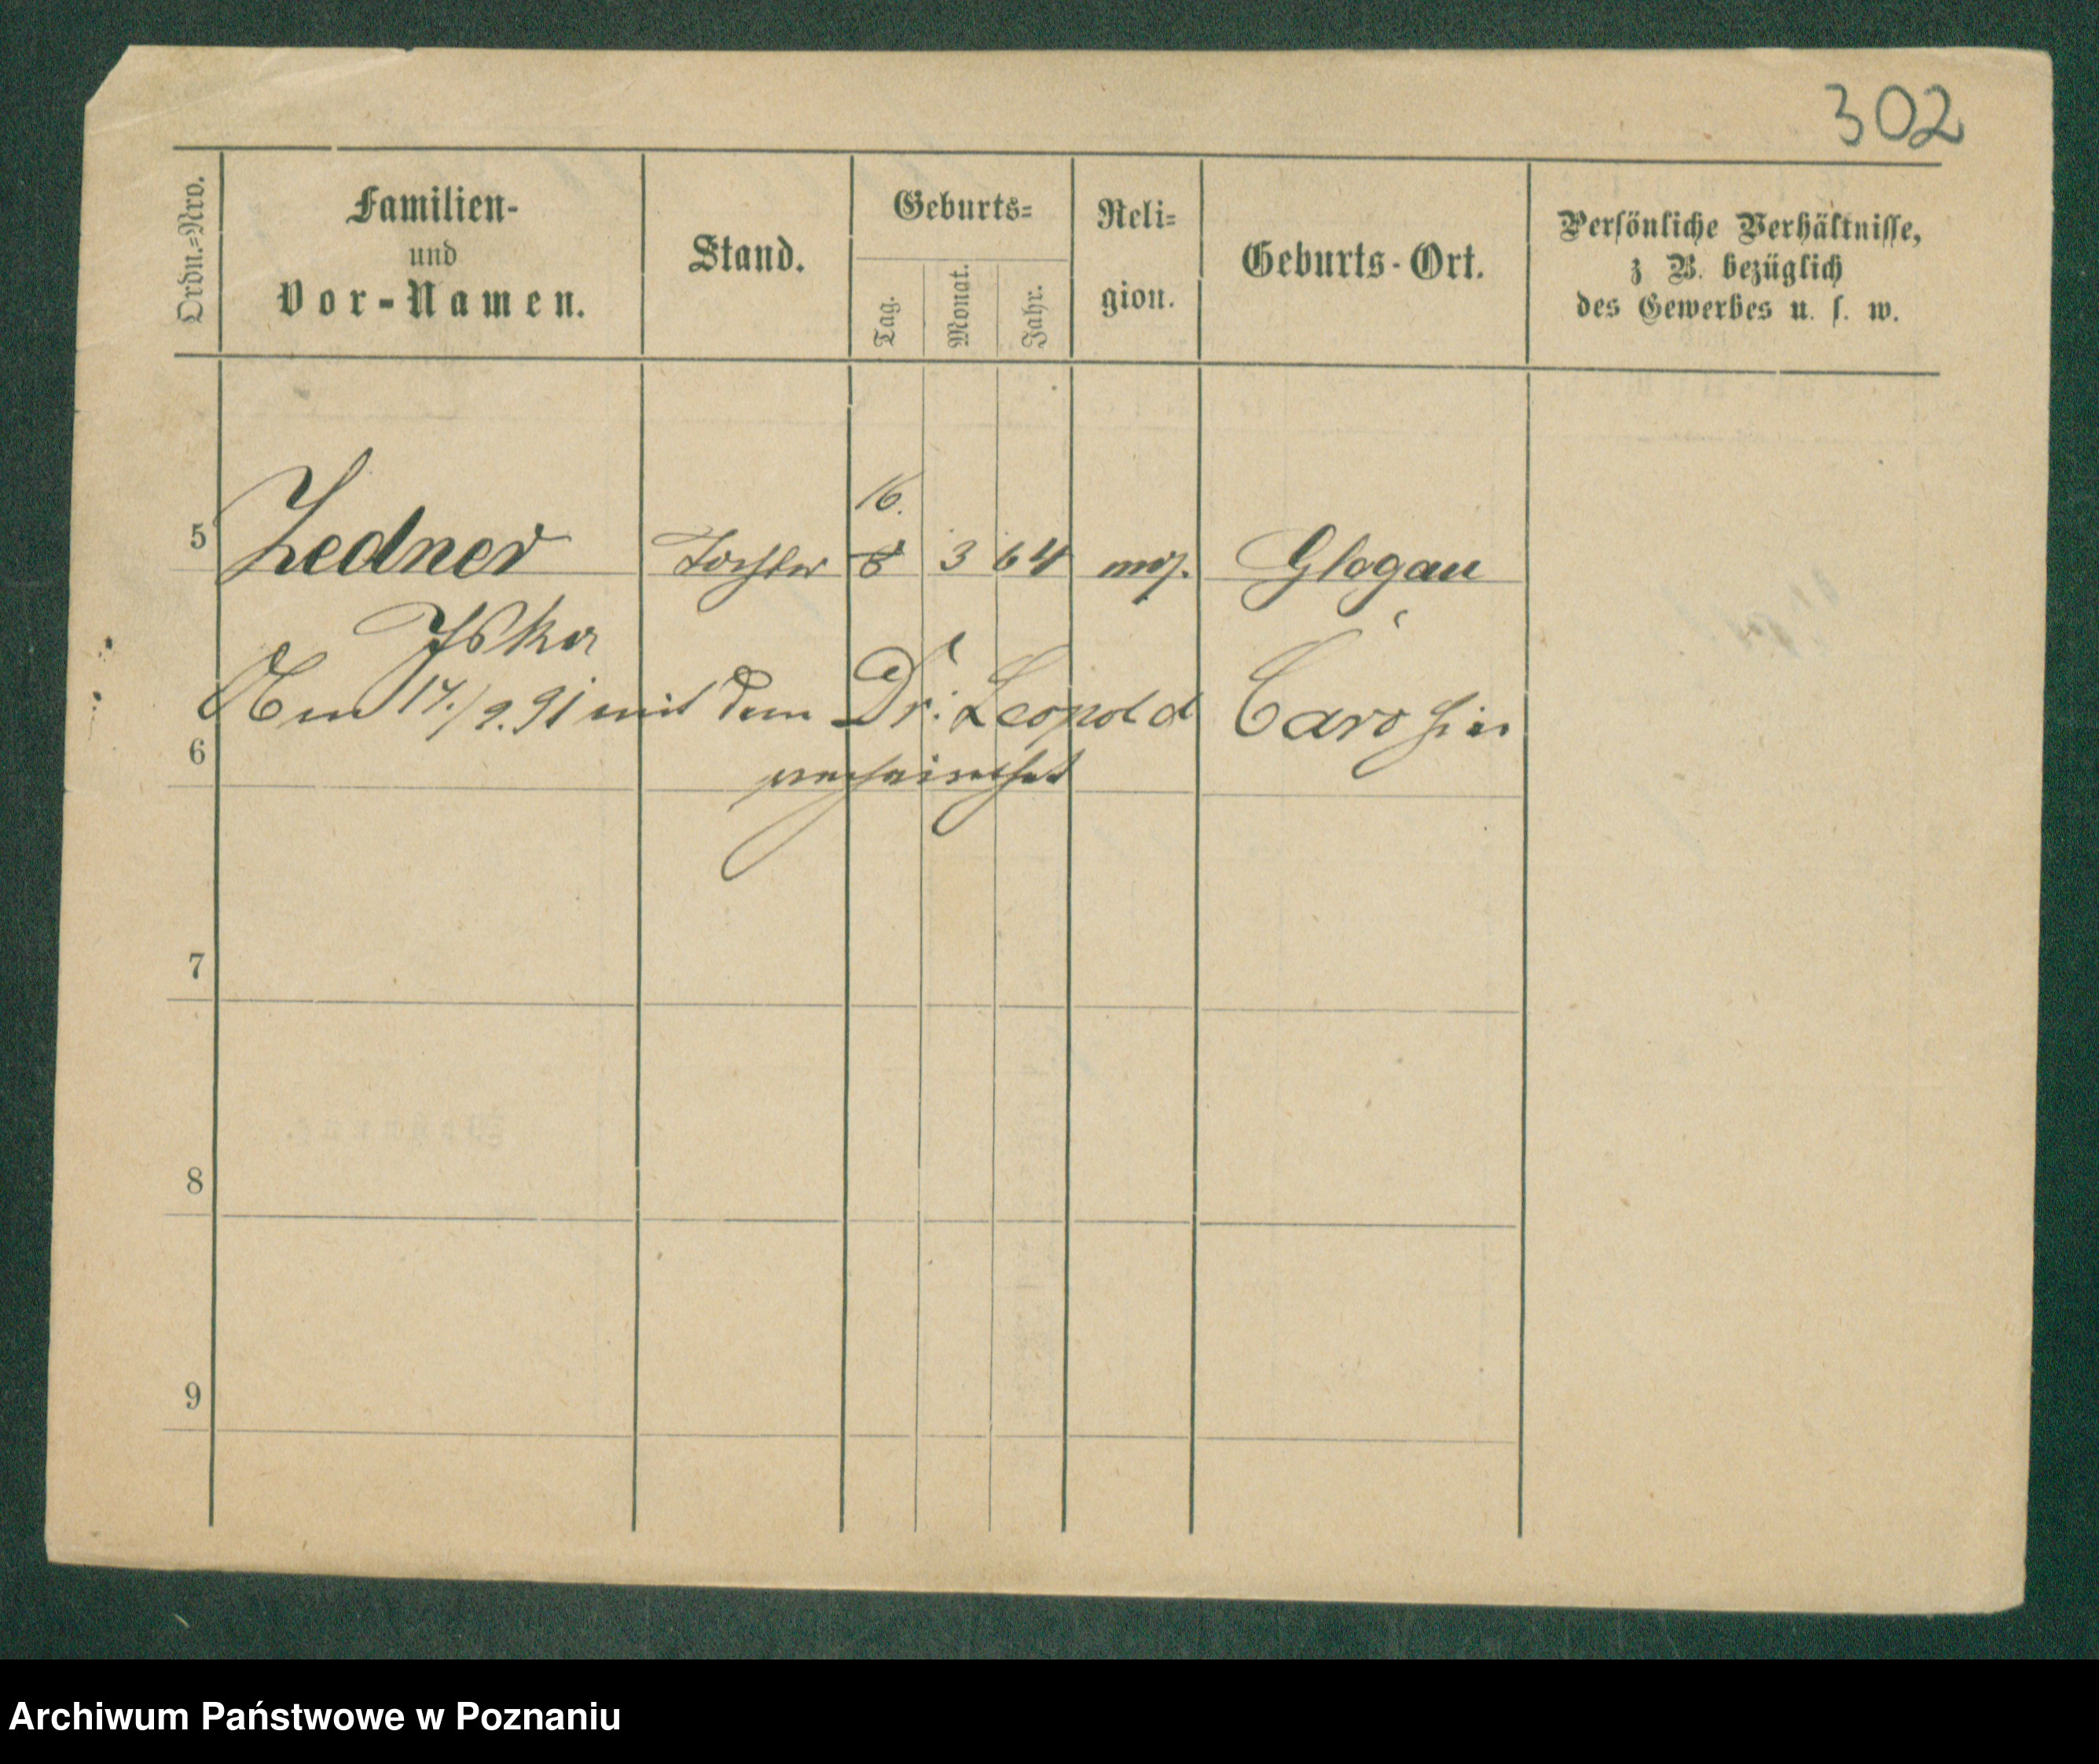 302
Ordn.=Nro.
Familien-
und
Vor-Namen.
Stand.
Geburts=
Tag.
Monat.
Jahr.
Reli=
gion.
Geburts-Ort.
Persönliche Verhältnisse,
z B. bezüglich
des Gewerbes u. s. w.
16.
5 Zedner Tochter 8 3 64 mos. Glogau
Am 17./9.91 mit dem Dr. Leopold Caro hier
6
verheirathet
7
8
9
Archiwum Państwowe w Poznaniu